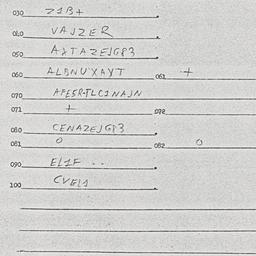 030 Z1B+
040 VAJZER
050 AXTAZEJGP3
060 ALBNUXAYT 061 +
070
071 + 072
080 CENAZEJGP3
081 0 082 0
090 EL1F ..
100 CVEL1